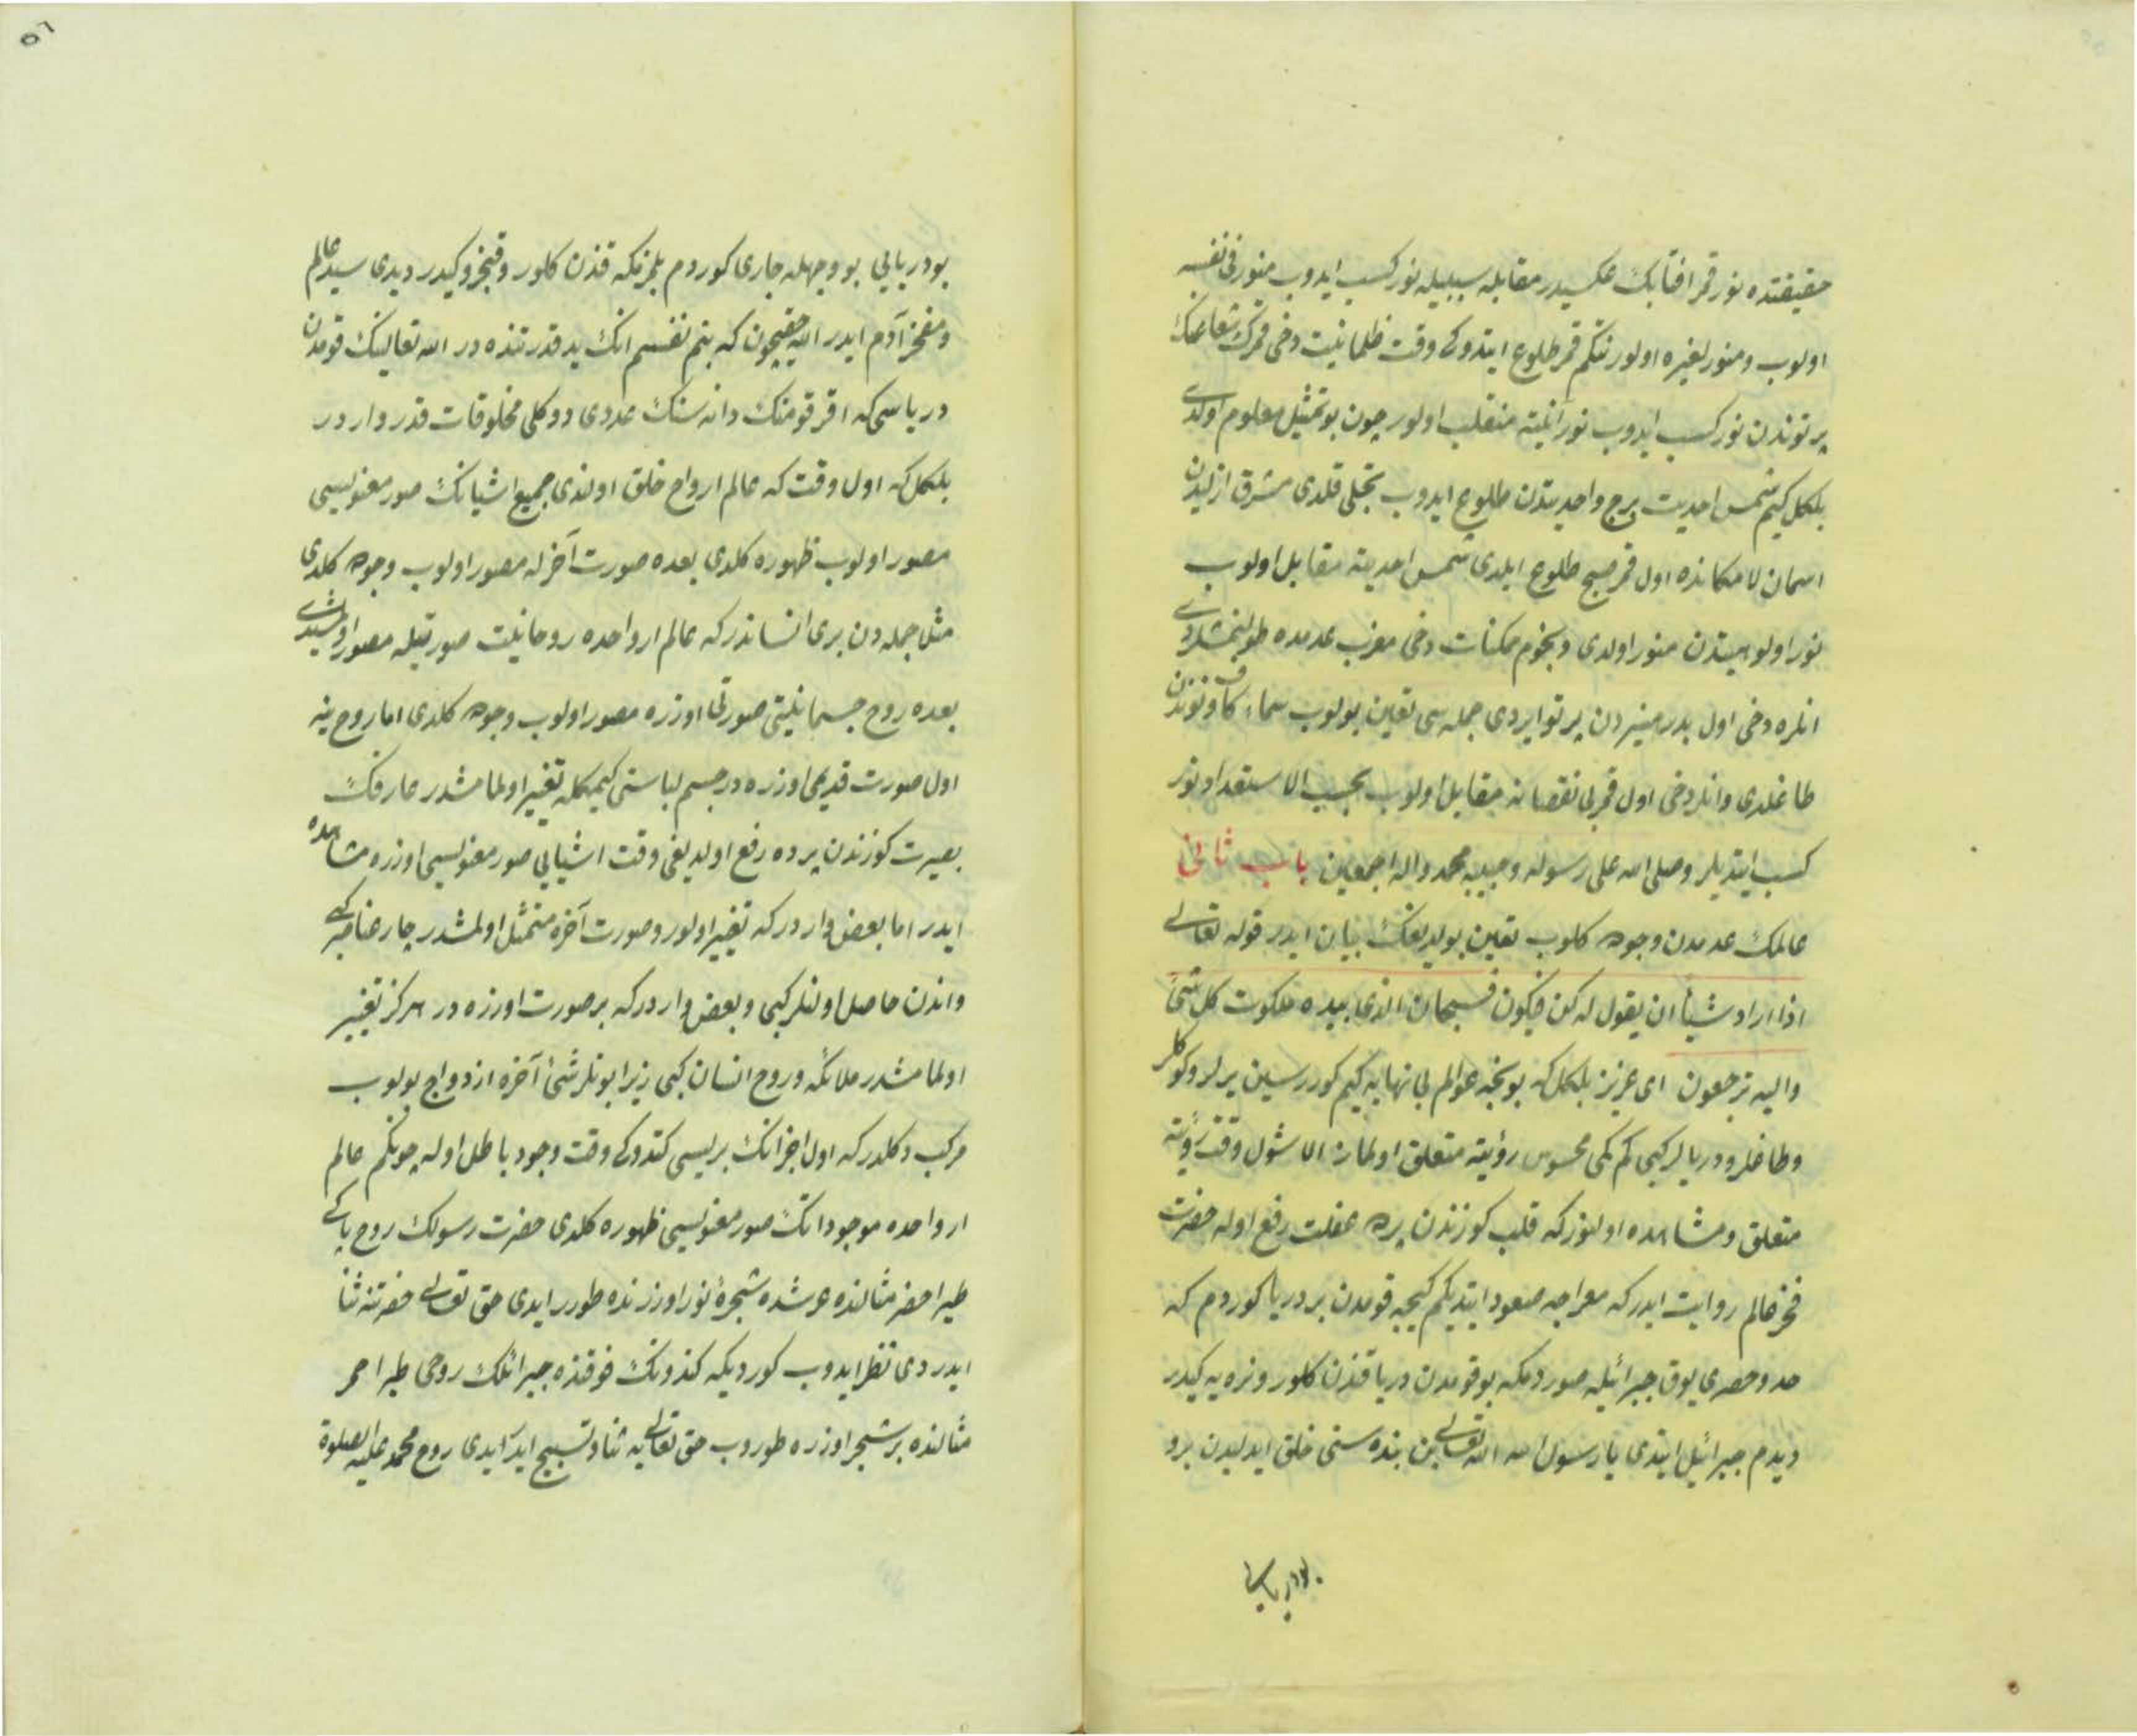 حقیقتده نور قمر افتابك عکسیدر مقابله سببیله نور کسب ایدوب منور فی نفسه
اولوب و منور لغیره اولور نتکم قمر طلوع ایتدوکی وقت ظلمانیت دخی قمرك شعاعنك
پرتوندن نور کسب ایدوب نورانیته منقلب اولور چون بو تمثیل معلوم اولدی
بلکل کیم شمس احدیت برج واحدیتدن طلوع ایدوب تجلی قلدی مشرق ازلیدن
اسمان لامکانده اول قمر صبح طلوع ایلدی شمس احدیته مقابل اولوب
نور اولوهیتدن منور اولدی و نجوم ممکنات دخی مغرب عدمده
انلره دخی اول بدر منیردن پرتو ایردی جمله سی تعین بولوب سماء کاف و نوندن
طاغلدی و انلر دخی اول قمر بی نقصانه مقابل اولوب بحسب الاستعداد نور
کسب ایتدیلر وصلی الله علی رسوله و حبیبه محمد واله اجمعین باب ثانی
عالمك عدمدن وجوده کلوب تعین بولدیغنك بیان ایدر قوله تعالی
اذا اراد شیأ ان یقول له کن فیکون فسبحان الذی بیده ملکوت کل شیء
والیه ترجعون ای عزیز بلکل که بو نجه عوالم بی نهایه کیم کوررسین یرلر و کوکلر
و طاغلر و دریالر کبی کم کمی محسوس رؤیته متعلق اولماز الا شول وقت رؤیته
متعلق و مشاهده اولنور که قلب کوزندن پرده غفلت رفع اوله حضرت
فخر عالم روایت ایدر که معراجه صعود ایتدیکم کیجه قومدن بر دریا کوردم که
حد و حصری یوق جبرائیله صوردمکه بو قومدن دریا قندن کلور و نره یه کیدر
دیدم جبرائیل ایتدی یا رسول الله الله تعالی بن بنده سنی خلق ایدلیدن برو
بو دریایی
بو دریایی بو وجهله جاری کوردم بلمزنکه قندن کلور و قنجرو کیدر دیدی سید عالم
و مفخر آدم ایدر الله حقیچون که بنم نفسم انك ید قدرتنده در الله تعالینك قومدن
دریاسی که اقر قومنك دانه سنك عددی دوکلی مخلوقات قدر واردر
بلکل که اول وقت که عالم ارواح خلق اولندی جمیع اشیانك صور معنویسی
مصور اولوب ظهوره کلدی بعده صورت آخرله مصور اولوب وجوده کلدی
مثلا جمله دن بری انساندر که عالم ارواحده روحانیت صورتیله مصور
بعده روح جسمانیتی صورتی اوزره مصور اولوب وجوده کلدی اما روح ینه
اول صورت قدیمی اوزره در جسم لباسنی کیمکله تغییر اولمامشدر عارفك
بصیرت کوزندن پرده رفع اولدیغی وقت اشیایی صور معنویسی اوزره مشاهده
ایدر اما بعض واردر که تغییر اولور و صورت آخره متمثل اولمشدر چار عناصر کبی
و اندن حاصل اولنلر کبی و بعض واردر که بر صورت اوزره در هرکز تغییر
اولمامشدر ملائکه و روح انسان کبی زیرا بونلر شیء آخره ازدواج بولوب
مرکب دکلدر که اول اجزانك بریسی کتدوکی وقت وجود باطل اوله چونکم عالم
ارواحده موجوداتك صور معنویسی ظهوره کلدی حضرت رسولك روح پاکی
طیر اخضر مثالنده عرشده شجرهٔ نور اوزرنده طورر ایدی حق تعالی حضرتنه ثنا
ایدردی نظر ایدوب کوردیکه کندونك فوقنده جبرائلك روحی طیر احمر
مثالنده بر شجر اوزره طوروب حق تعالی یه ثنا و تسبیح ایدر ایدی روح محمد علیه الصلوة